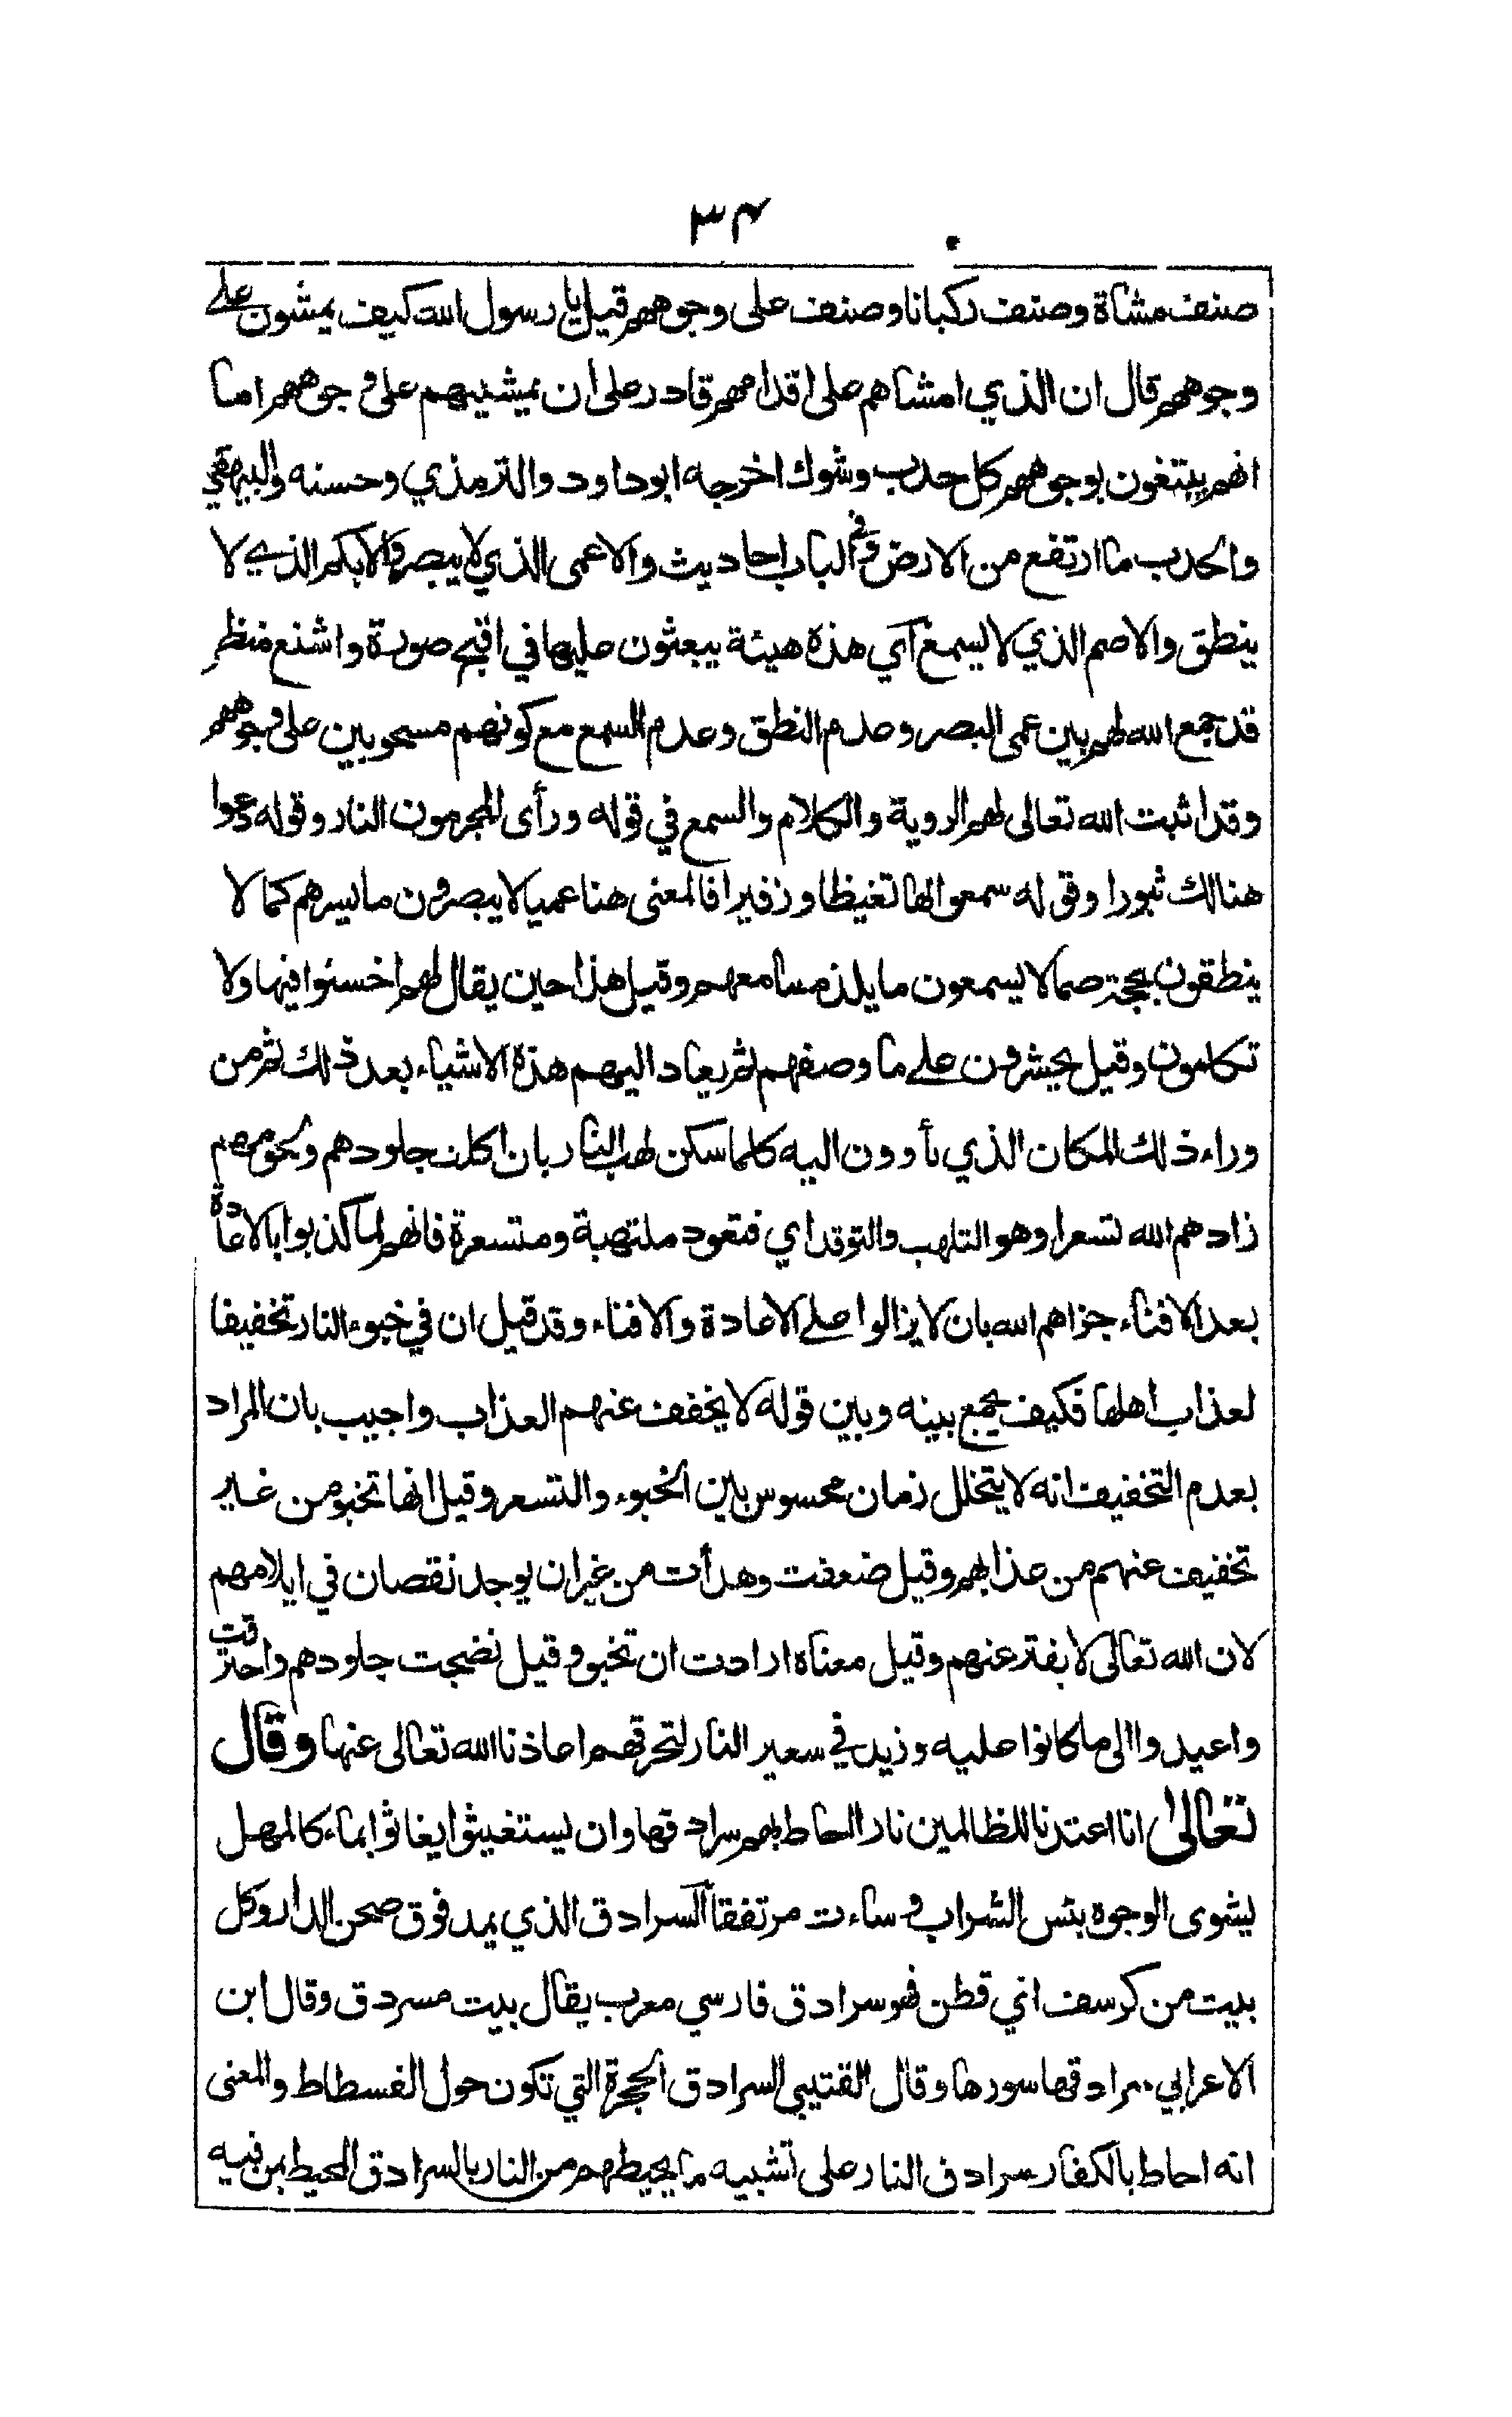 ٣٤
صنف مشاة وصنف ركبانا وصنف على وجوههم قيل يا رسول الله كيف يمشون على
وجوههم قال ان الذي امشاهم على اقدامهم قادر على ان يمشيهم على وجوههم اما
انهم يتقون بوجوههم كل حدب وشوك اخرجه ابو داود والترمذي وحسنه والبيهقي
والحدب ما ارتفع من الارض وفي الباب احاديث والاعمى الذي لا يبصر والابكم الذي لا
ينطق والاصم الذي لا يسمع اي هذه هيئة يبعثون عليها في اقبح صورة واشنع منظر
قد جمع الله لهم بين عمى البصر وعدم النطق وعدم السمع مع كونهم مسحوبين على وجوههم
وقد اثبت الله تعالى لهم الروية والكلام والسمع في قوله ورأى المجرمون النار وقوله دعوا
هنالك ثبورا وقوله سمعوا لها تغيظا وزفيرا فالمعنى هنا عميا لا يبصرون ما يسرهم كما لا
ينطقون بحجة صما لا يسمعون ما يلذ مسامعهم وقيل هذا حين يقال لهم اخسئوا فيها ولا
تكلمون وقيل يحشرون على ما وصفهم ثم يعاد اليهم هذه الاشياء بعد ذلك ثم من
وراء ذلك المكان الذي يأوون اليه كلما سكن لهب النار بان اكلت جلودهم ولحومهم
زادهم الله تسعرا وهو التلهب والتوقد اي فتعود ملتهبة ومتسعرة فانهم لما كذبوا بالاعادة
بعد الافناء جزاهم الله بان لا يزالوا على الاعادة والافناء وقد قيل ان في خبوء النار تخفيفا
لعذاب اهلها فكيف يجمع بينه وبين قوله لا يخفف عنهم العذاب واجيب بان المراد
بعدم التخفيف انه لا يتخلل زمان محسوس بين الخبوء والتسعر وقيل انها تخبو من غير
تخفيف عنهم من عذابهم وقيل ضعفت وهدأت من غير ان يوجد نقصان في ايلامهم
لان الله تعالى لا يفتر عنهم وقيل معناه ارادت ان تخبو وقيل نضجت جلودهم واحترقت
واعيدوا الى ما كانوا عليه وزيد في سعير النار لتحرقهم اعاذنا الله تعالى عنها وقال
تعالى انا اعتدنا للظالمين نارا احاط بهم سرادقها وان يستغيثوا يغاثوا بماء كالمهل
يشوى الوجوه بئس الشراب وساءت مرتفقا السرادق الذي يمد فوق صحن الدار وكل
بيت من كرسف اي قطن فهو سرادق فارسي معرب يقال بيت مسردق وقال ابن
الاعرابي سرادقها سورها وقال القتيبي السرادق الحجرة التي تكون حول الفسطاط والمعنى
انه احاط بالكفار سرادق النار على تشبيه ما يحيط بهم من النار بالسرادق المحيط بمن فيه